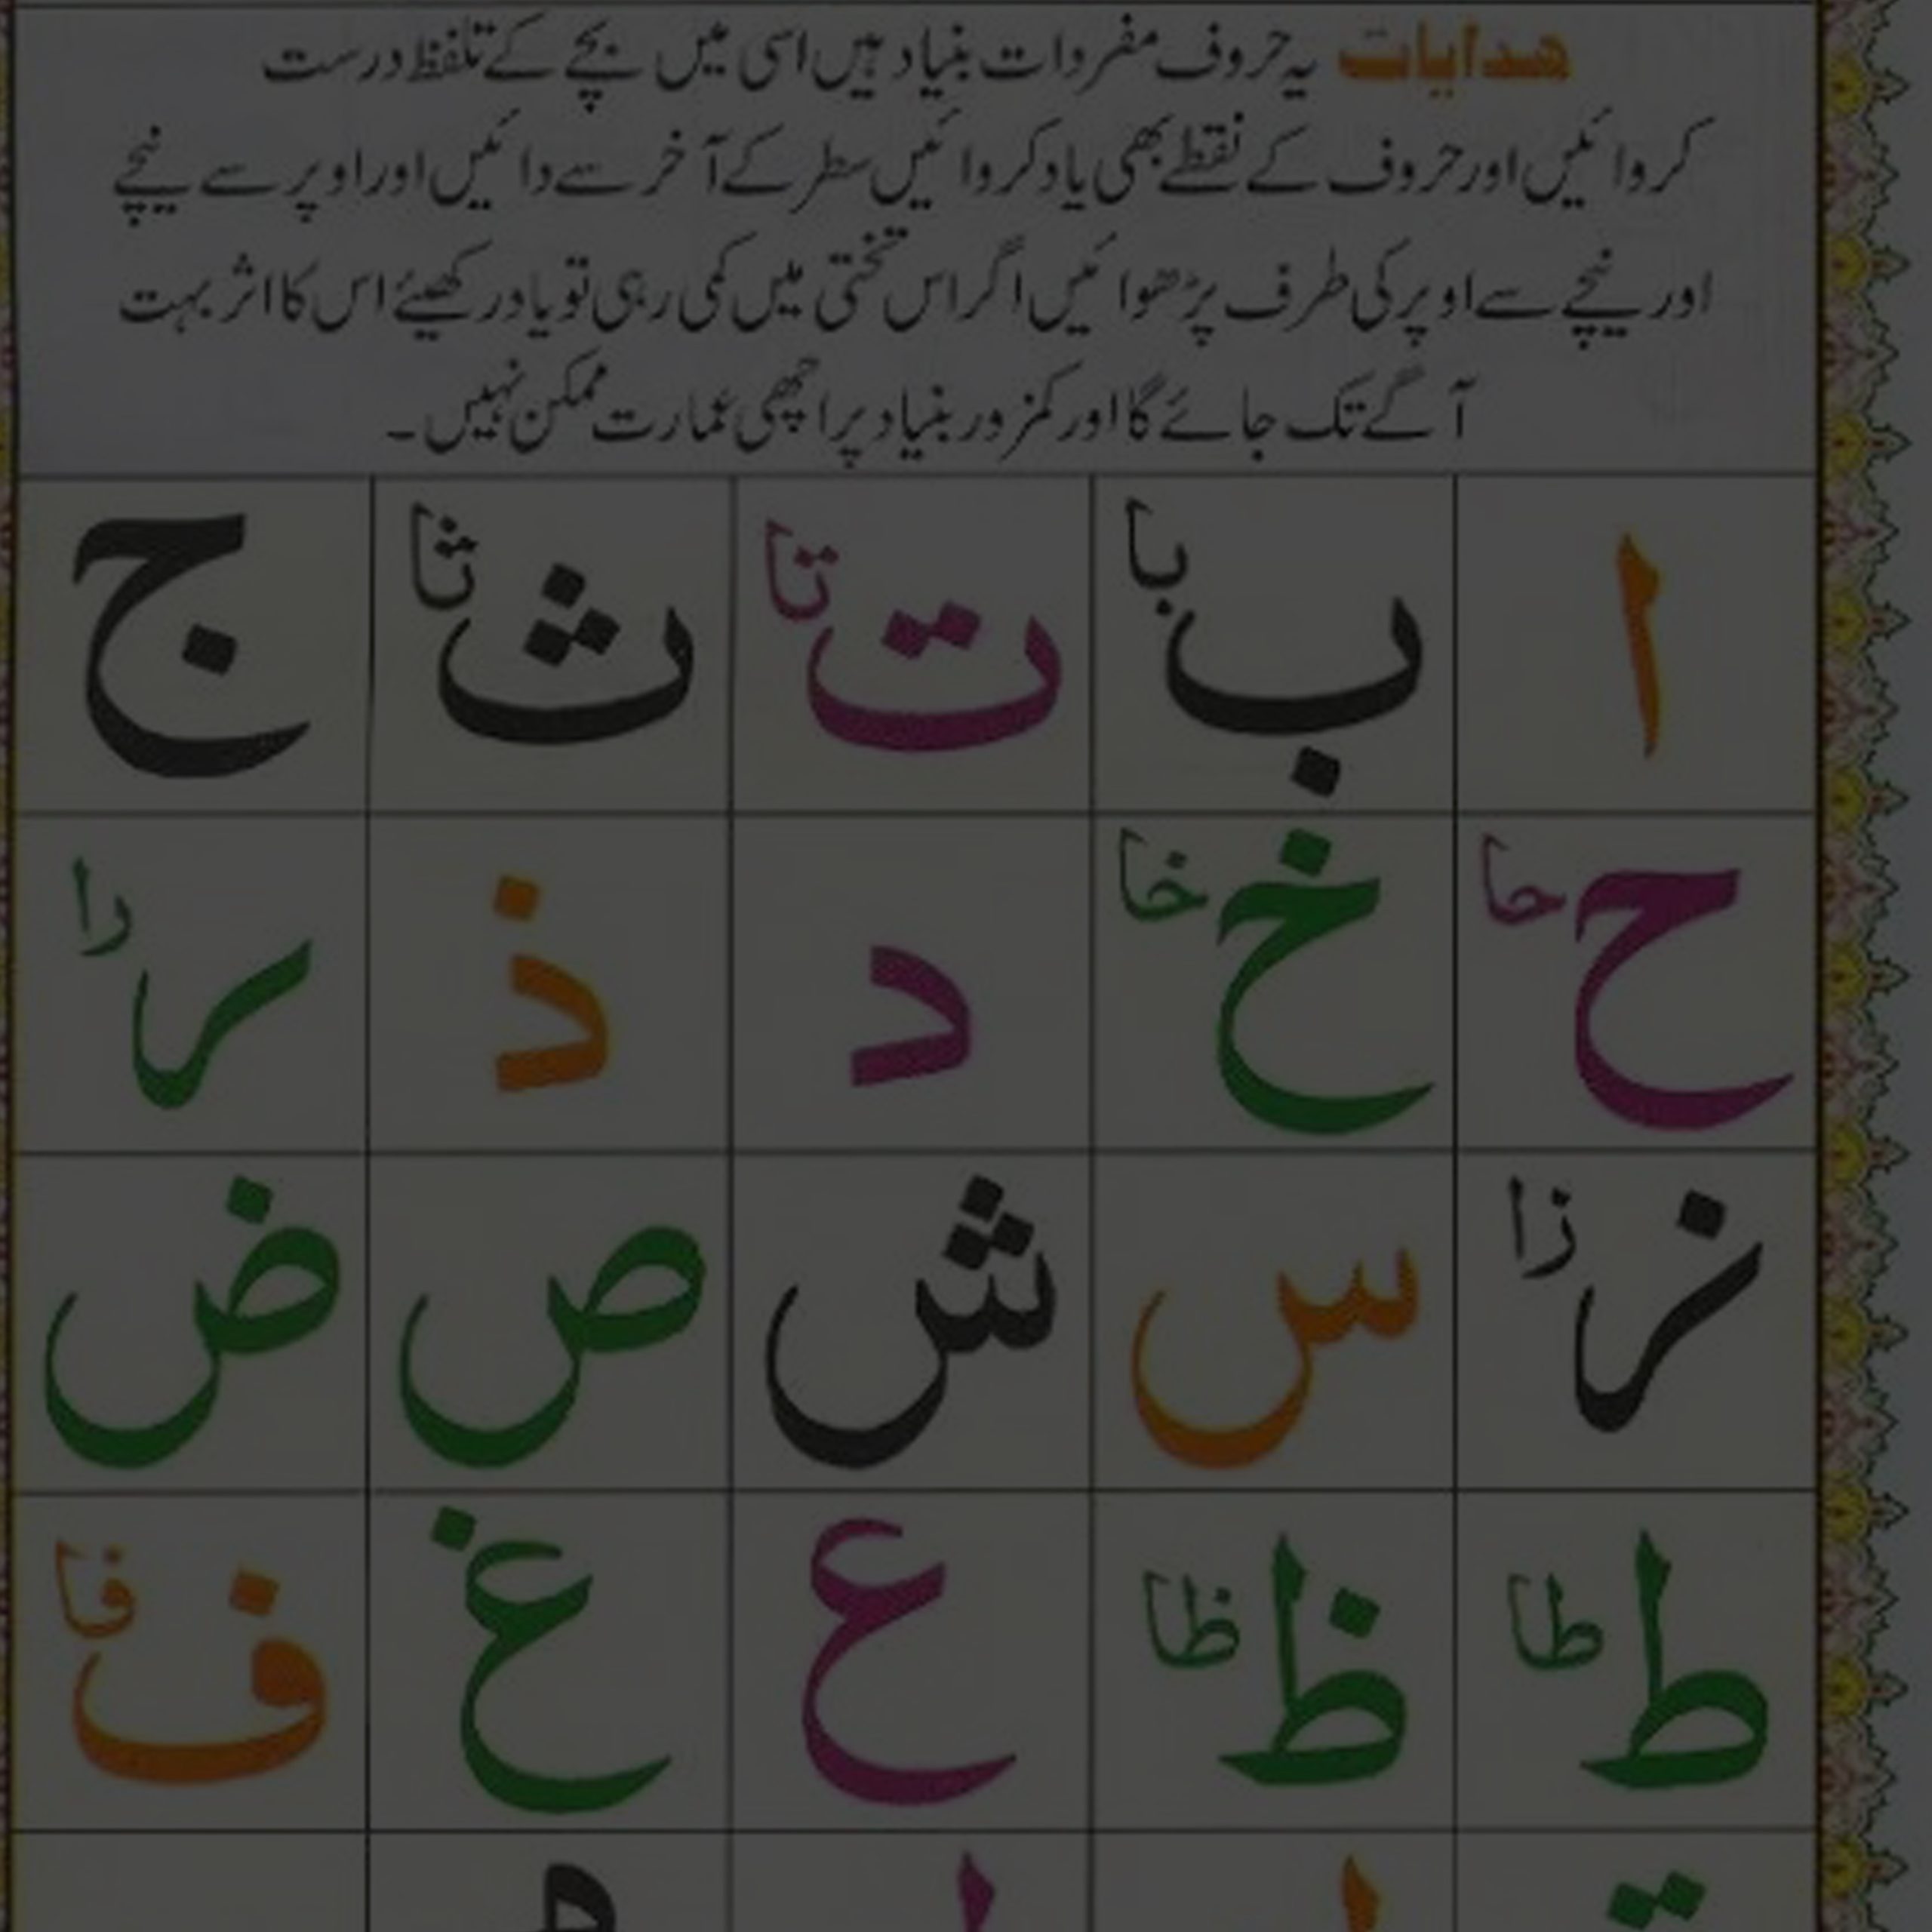 ھدایات یہ حروف مفردات بنیاد ہیں اسی میں بچے کے تلفظ درست
کروائیں اور حروف کے نقطے بھی یاد کروائیں سطر کے آخر سے دائیں اور اوپر سے نیچے
اور نیچے سے اوپر کی طرف پڑھوائیں اگر اس تختی میں کمی رہی تو یاد رکھیئے اس کا اثر بہت
آگے تک جائے گا اور کمزور بنیاد پر اچھی عمارت ممکن نہیں۔
ا ب با ت تا ث ثا ج
ح حا خ خا د ذ ر را
ز زا س ش ص ض
ط طا ظ ظا ع غ ف فا